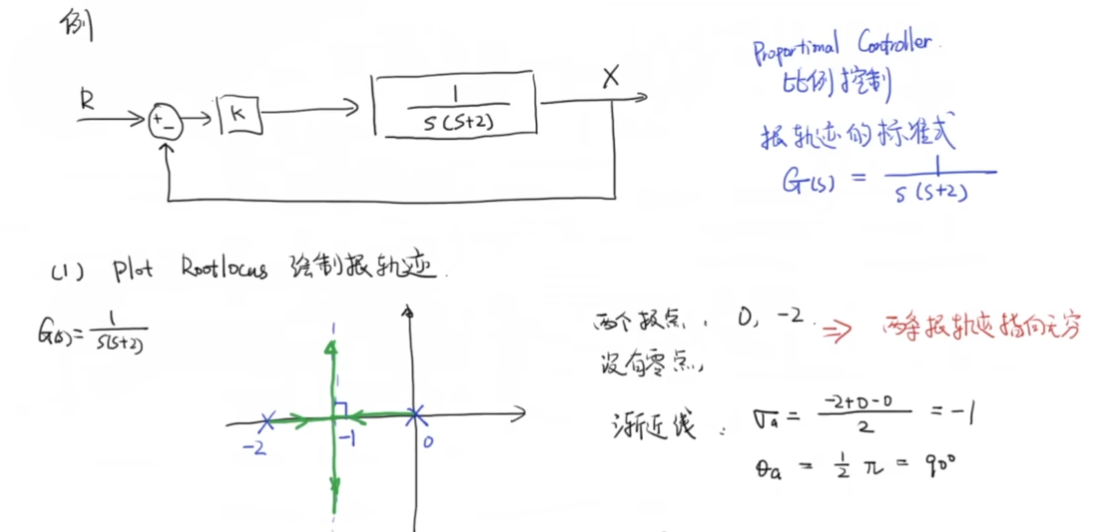 例
R
+
-
K
1
S(S+2)
X
Proportional Controller.
比例控制
根轨迹的标准式
G(s) = 1 / S(S+2)
(1) Plot Rootlocus 绘制根轨迹.
G(s) = 1 / S(S+2)
-2
-1
0
两个极点, 0, -2. ⇒ 两条根轨迹指向无穷
没有零点,
渐近线: σa = (-2+0-0) / 2 = -1
θa = 1/2 π = 90°